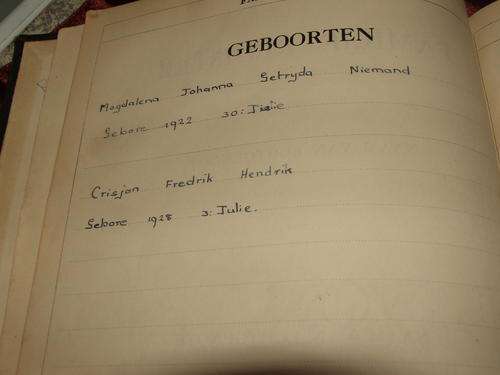 GEBOORTEN
Magdalena Johanna Getryda Niemand
Gebore 1922 30: Julie
Crisjan Fredrik Hendrik
Gebore 1928 3: Julie.